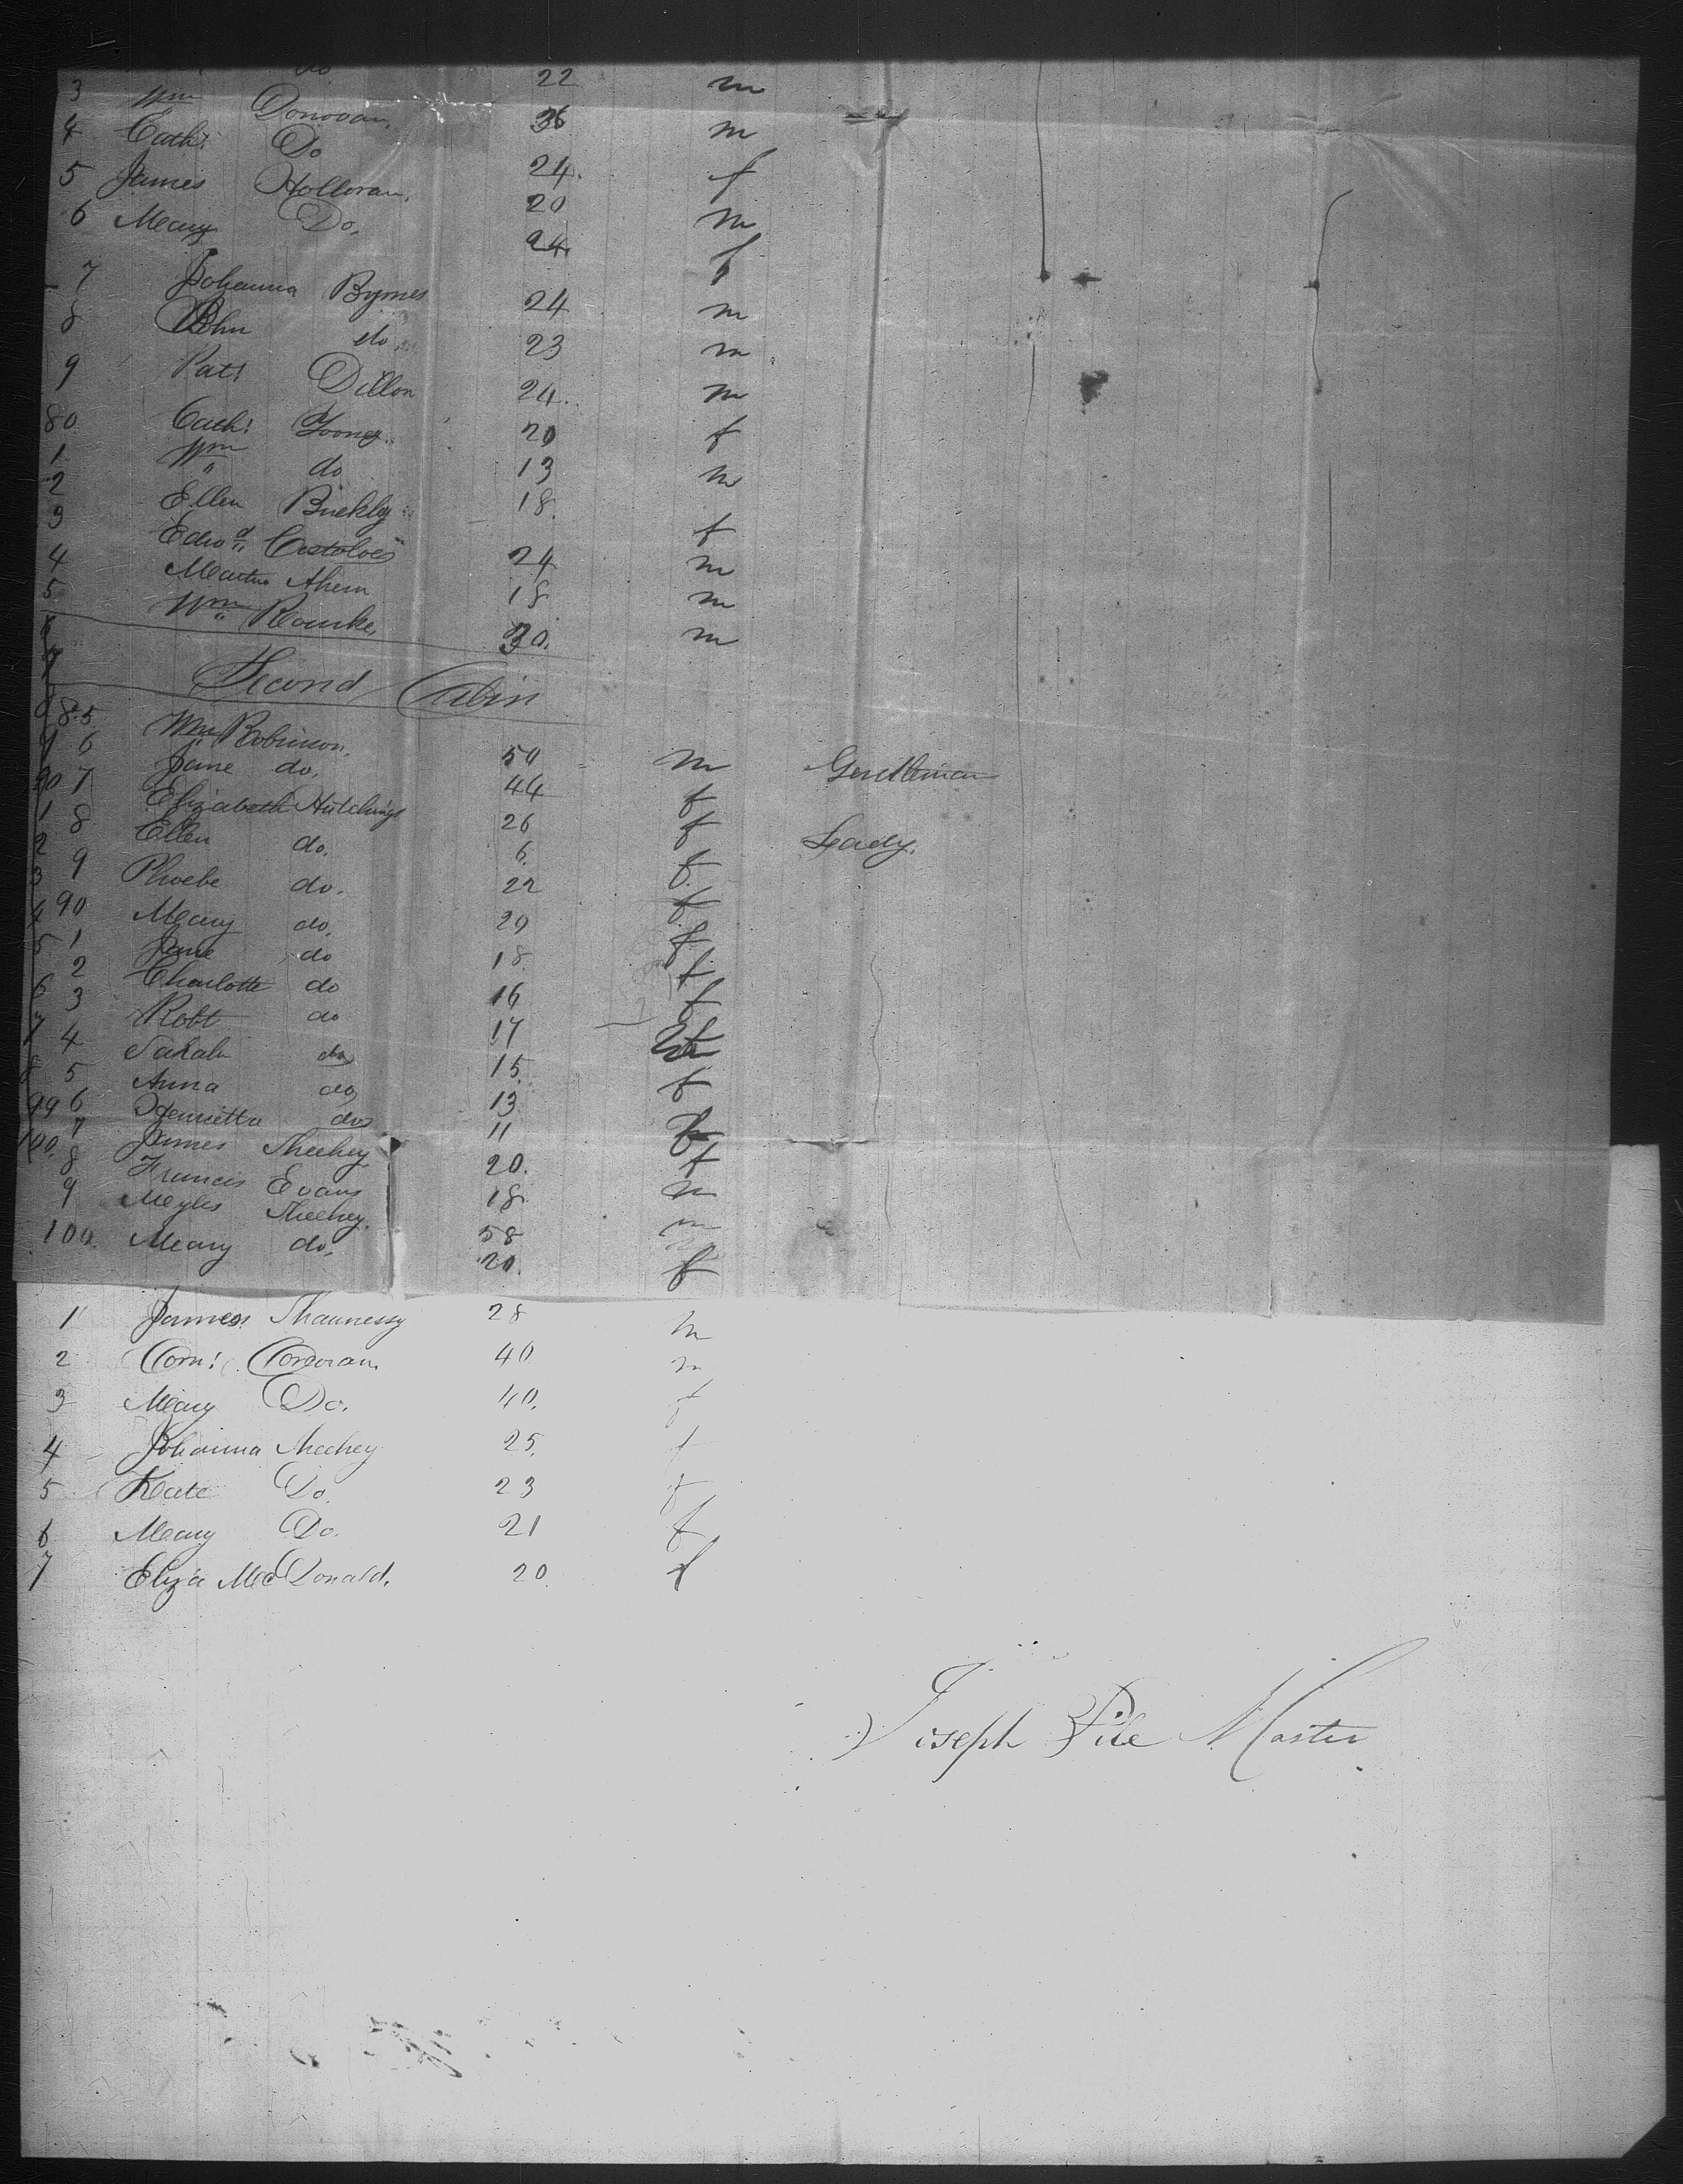 do 22 m
3 Wm Donovan, 36 m
4 Cath: Do 24. f
5 James Holloran, 20 m
6 Mary Do, 24 f
7 Johanna Byrnes 24 m
8 John do 23 m
9 Pat: Dillon 24. m
80 Cath: 20 f
1 Wm do 13 m
2 Ellen Buckley 18. f
3 Edwd 24 m
4 Martin Ahern 18 m
5 Wm Rourke, 30. m
Second Cabin
85 Wm Robinson, 50 m Gentleman
9 6 Jane do, 44 f
90 7 Elizabeth Hutchings 26 f Lady.
1 8 Ellen do. 6. f
2 9 Phoebe do. 22 f
3 90 Mary do, 20 f
4 1 Jane do 18 f
5 2 Charlotte do 16 f
6 3 Robt do 17 m
7 4 Sarah do 15. f
8 5 Anna do 13 f
99 6 Henrietta do 11 f
100. 7 James Sheehey 20. m
8 Francis Evans 18. m
9 Myles Sheehey. 58 m
100. Mary do, 20. f
1 James Shaunessy 28 m
2 Corn: Corcoran 40 m
3 Mary Do. 40. f
4 Johanna Sheehey 25, f
5 Kate Do. 23 f
6 Mary Do. 21 f
7 Eliza McDonald. 20 f
Joseph Pile Master